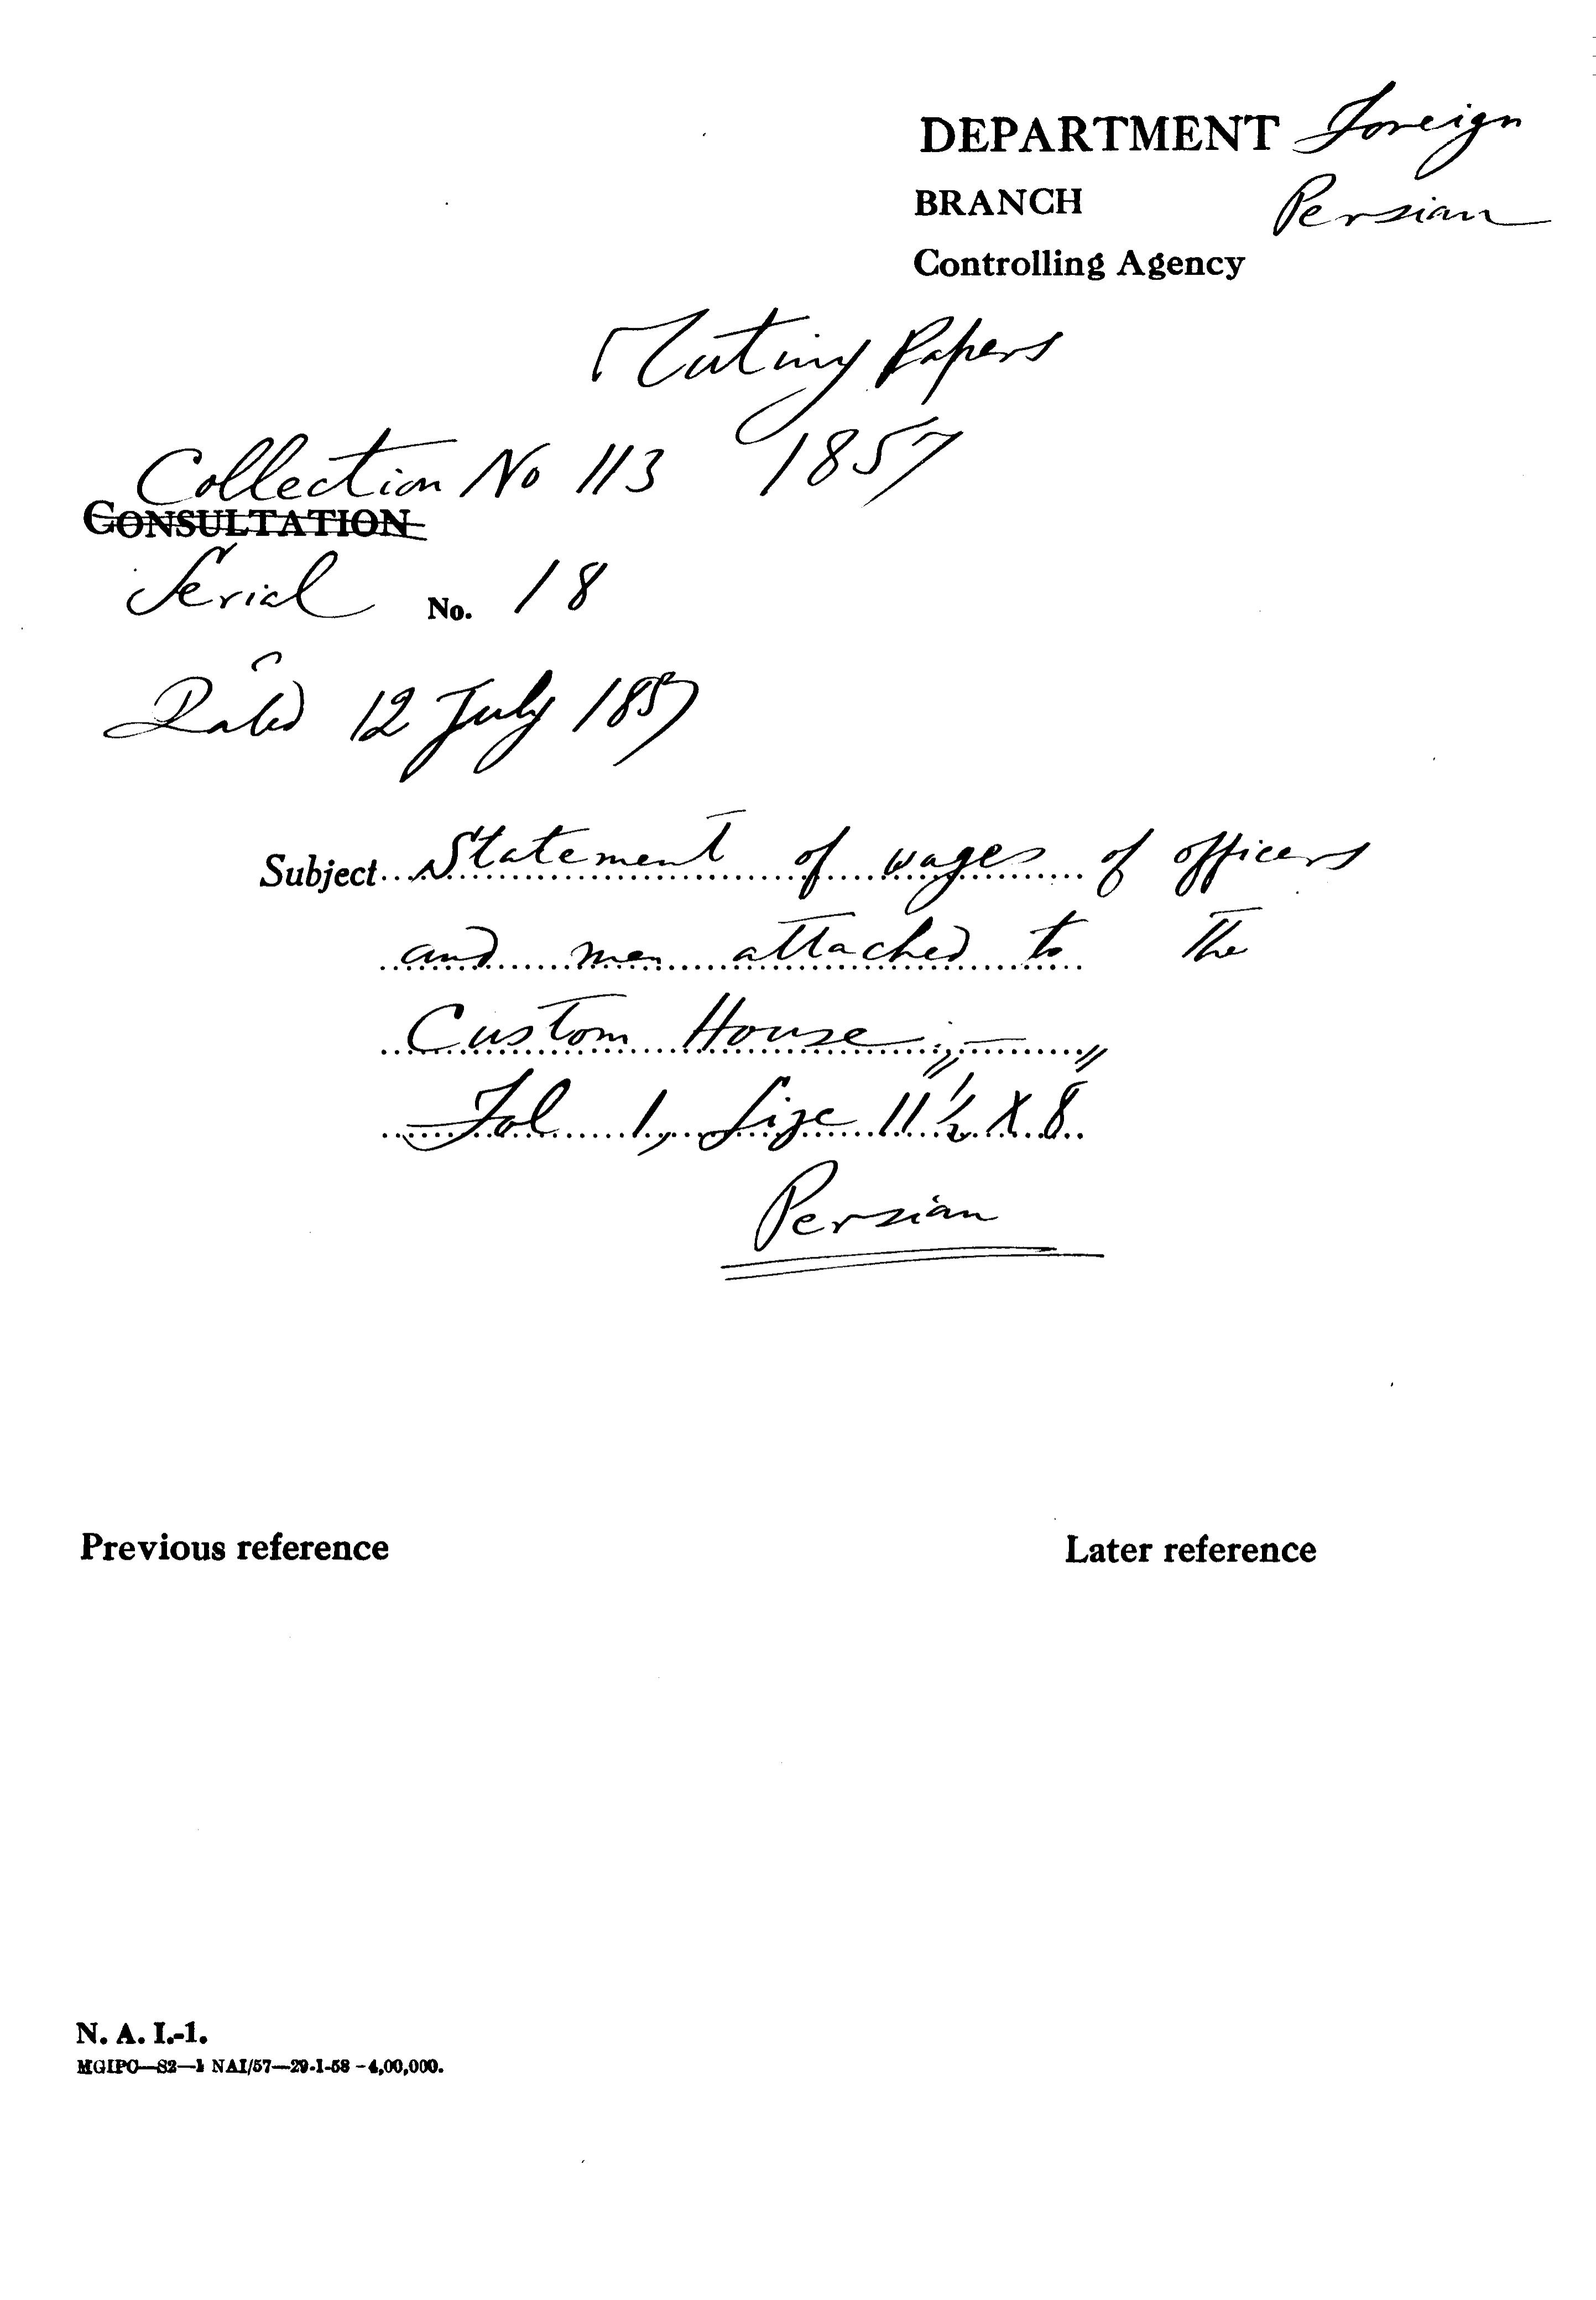 DEPARTMENT Foreign
BRANCH Persian
Controlling Agency
Mutiny Papers
Collection No 113 1857
CONSULTATION
Serial No. 18
Dated 12 July 1857
Subject Statement of wages of officers
and men attached to the
Custom House;—
Fol 1, Size 11½" X 8"
Persian
Previous reference Later reference
N. A. I.-1.
MGIPC—S2—1 NAI/57—29-1-58 -4,00,000.